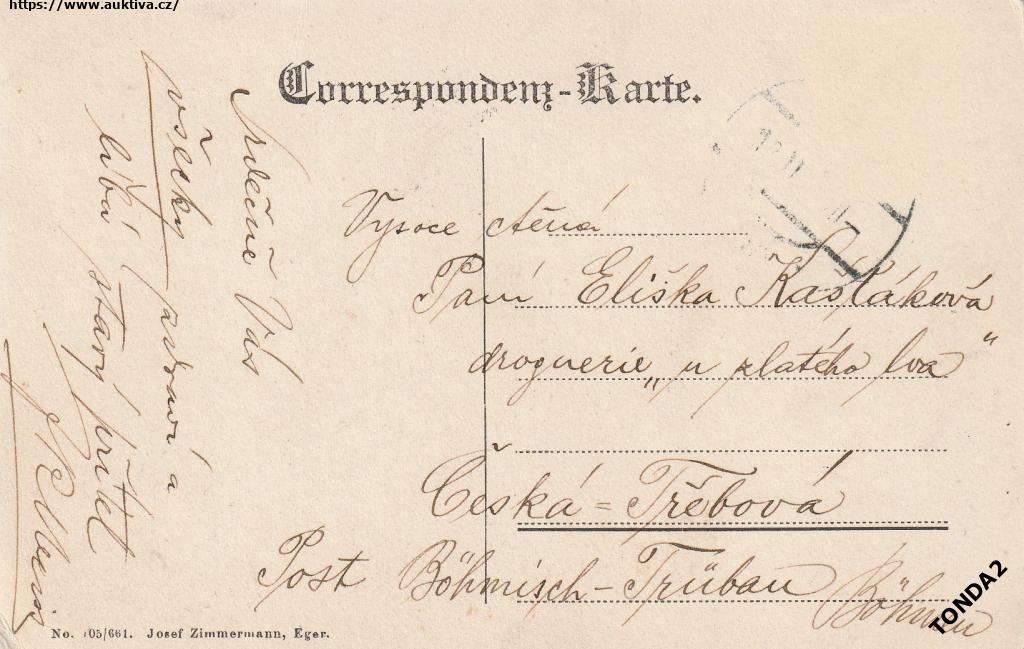 https://www.auktiva.cz/
Correspondenz-Karte.
Srdečně Vás
všecky zdraví a
líbá starý přítel
Vysoce ctěná
Paní Eliška Kašťáková
droguerie „u zlatého lva"
Česká=Třebová
Post Böhmisch-Trübau Böhmen
No. 105/661. Josef Zimmermann, Eger.
TONDA2